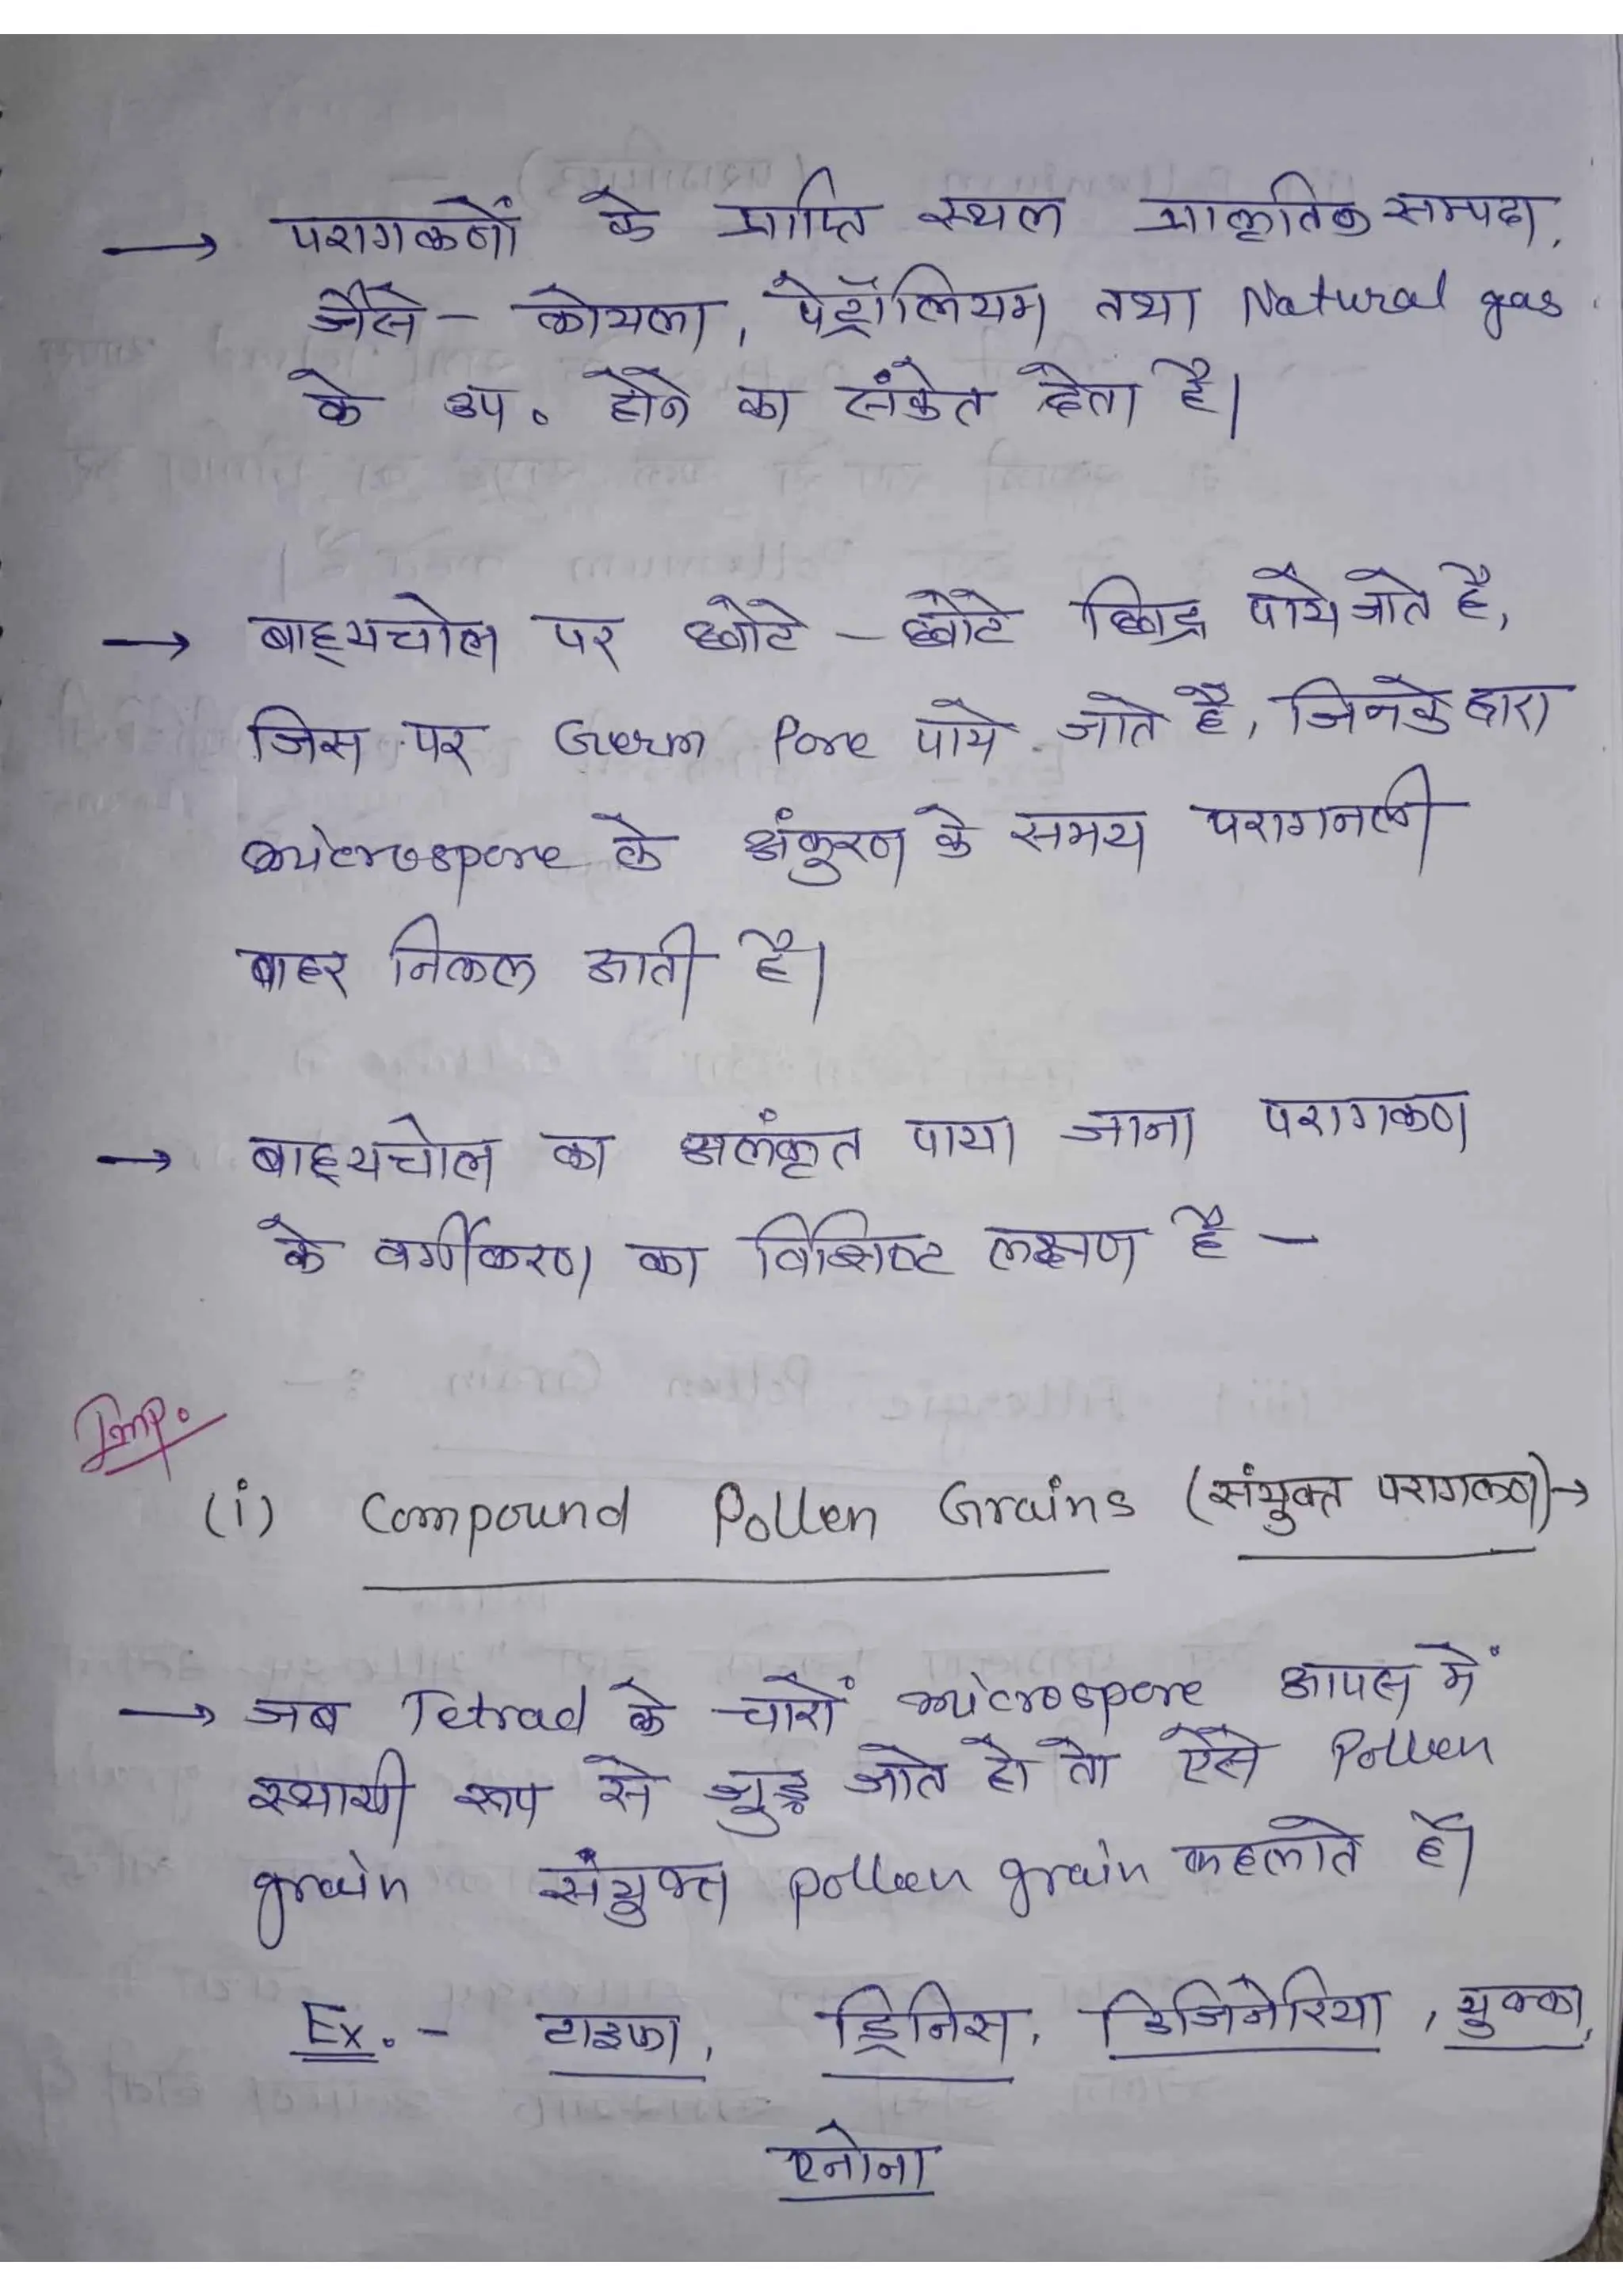 → परागकणों के प्राप्ति स्थल प्राकृतिक सम्पदा,
जैसे - कोयला, पेट्रॉलियम तथा Natural gas
के उप. होने का संकेत देता है।
→ बाह्यचोल पर छोटे - छोटे छिद्र पाये जाते है,
जिस पर Germ Pore पाये जाते है, जिनके द्वारा
microspore के अंकुरण के समय परागनली
बाहर निकल आती है।
→ बाह्यचोल का अलंकृत पाया जाना परागकण
के वर्गीकरण का विशिष्ट लक्षण है -
Imp.
(i) Compound Pollen Grains (संयुक्त परागकण) →
→ जब Tetrad के चारों microspore आपस में
स्थायी रूप से जुड़ जाते हो तो ऐसे Pollen
grain संयुक्त pollen grain कहलाते हैं।
Ex. - टाइफा, ड्रिनिस, डिजिनेरिया, युक्का,
एनोना